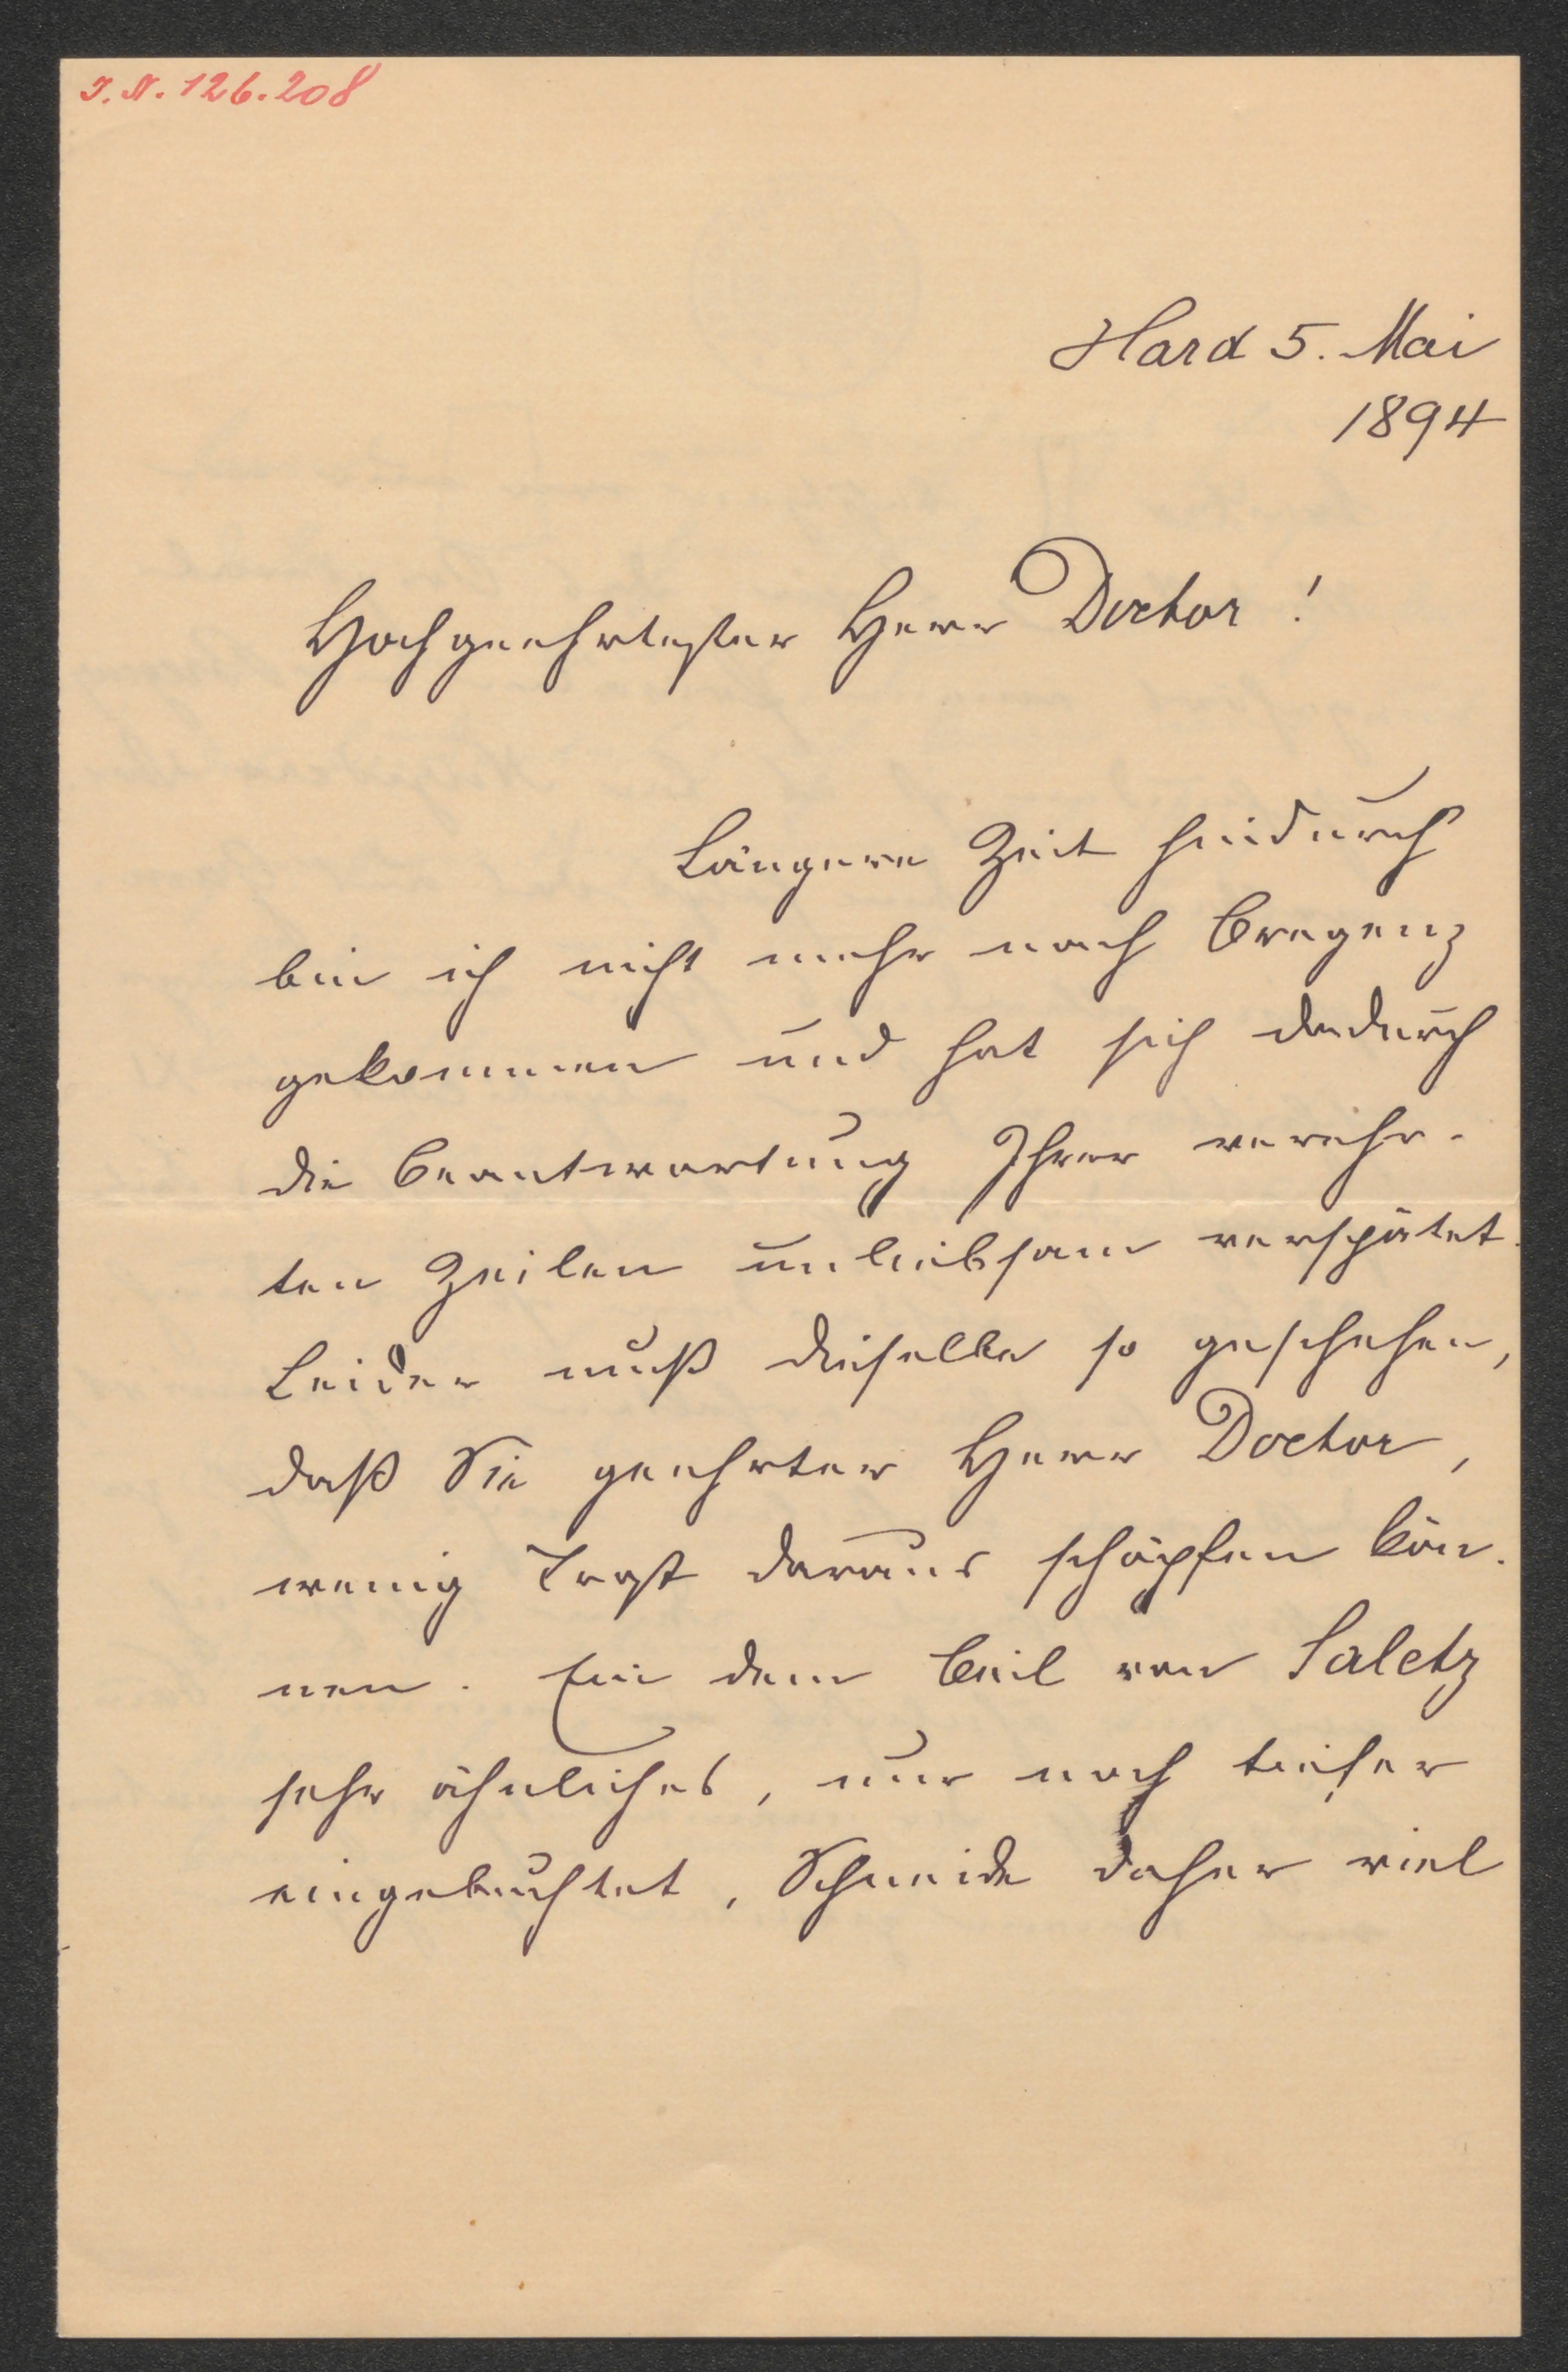 I. N. 126.208
Hard 5. Mai
1894
Hochgeehrtester Herr Doctor!
Längere Zeit hindurch
bin ich nicht mehr nach Bregenz
gekommen und hat sich dadurch
die Beantwortung Ihrer verehr-
ten Zeilen unliebsam verspätet.
Leider muß dieselbe so geschehen,
daß Sie geehrter Herr Doctor,
wenig Trost daraus schöpfen kön-
nen. Ein dem Beil von Saletz
sehr ähnliches, nur noch tiefer
eingebuchtet, Schneide daher viel